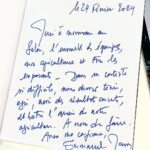 le 24 Février 2024
Merci à nouveau au
Salon, l'ensemble des équipes,
nos agriculteurs et tous les
exposants. Dans un contexte
si difficile, nous devons tenir,
agir, avoir des résultats
et bâtir l'avenir de notre
agriculture. A nous de faire.
Avec ma confiance,
Emmanuel